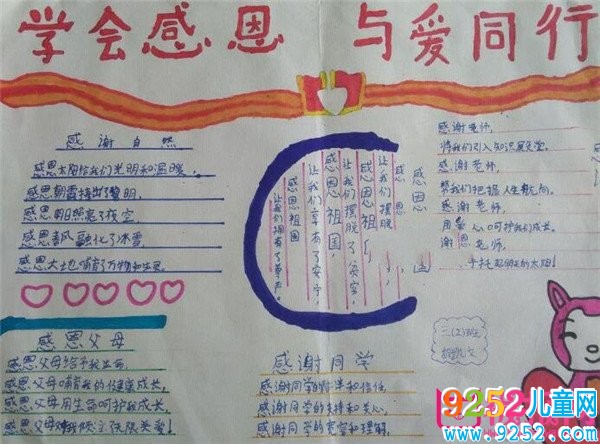 学会感恩 与爱同行
感谢自然
感恩太阳给我们光明和温暖，
感恩朝霞捧出了黎明，
感恩朝日照亮了夜空，
感恩春风融化了冰雪，
感恩大地哺育了万物和生灵。
感恩父母
感恩父母给予我生命，
感恩父母哺育我的健康成长，
感恩父母用生命呵护我成长，
感恩父母对我倾注无限关爱！
感恩
感恩祖国，
让我们摆脱了贫穷，
感恩祖国，
让我们享有了安宁，
感恩祖国
让我们拥有了尊严。
感谢老师，
将我们引入知识殿堂。
感谢老师，
帮我们把握人生航向。
感谢老师，
用爱心呵护我们成长。
谢恩老师，
手托起明天的太阳！
感谢同学
感谢同学的信任，
感谢同学的支持和关心，
感谢同学的宽容和理解。
三(2)班
9252儿童网
www.9252.com